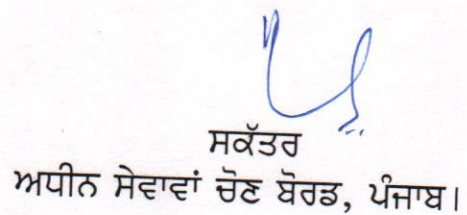 ਸਕੱਤਰ
ਅਧੀਨ ਸੇਵਾਵਾਂ ਚੋਣ ਬੋਰਡ, ਪੰਜਾਬ।